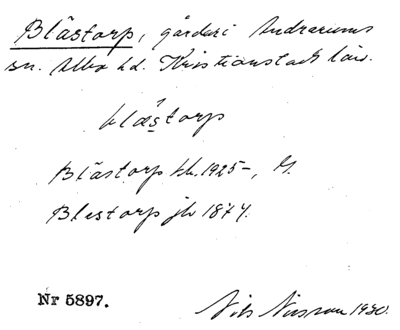 Blästorp, gårdar i Andrarums
sn. Albo hd. Kristianstads län.
blæstorp
Blästorp kk. 1925–, G.
Blestorp jb 1874.
Nr 5897.
Nils Nilsson 1930.